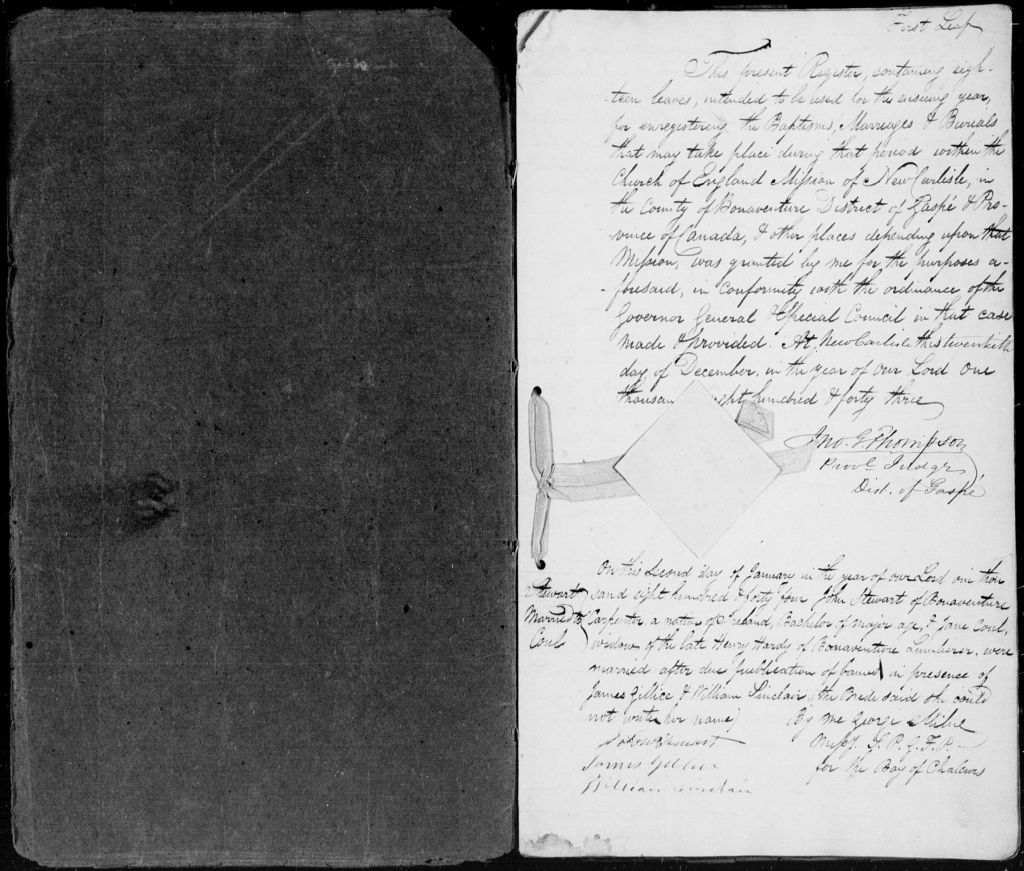 First Leaf
This present Register, containing eigh-
-teen leaves, intended to be used for the ensuing year,
for enregistering the Baptisms, Marriages & Burials
that may take place during that period within the
Church of England Mission of New Carlisle, in
the County of Bonaventure District of Gaspé & Pro-
vince of Canada, & other places depending upon that
Mission, was granted by me for the purposes a-
-foresaid, in conformity with the ordinance of the
Governor General & Special Council in that case
made & provided. At New Carlisle this twentieth
day of December, in the year of our Lord one
thousan ght hundred & forty three
Jno. G Thompson
Provl Judge
Dist. of Gaspé
On this second day of January in the year of our Lord one thou
Stewart sand eight hundred & forty four John Stewart of Bonaventure
Married to Carpenter, a native of Ireland, Bachelor of major age, & Jane Coul,
Coul widow of the late Henry Hardy of Bonaventure Lumberer, were
married after due publication of banns in presence of
James Gillice & William Sinclair, (the Bride said she could
not write her name) By me George Milne
Missy. S. P. G. F. P.
for the Bay of Chaleurs
John Stewart
James
William Sinclair